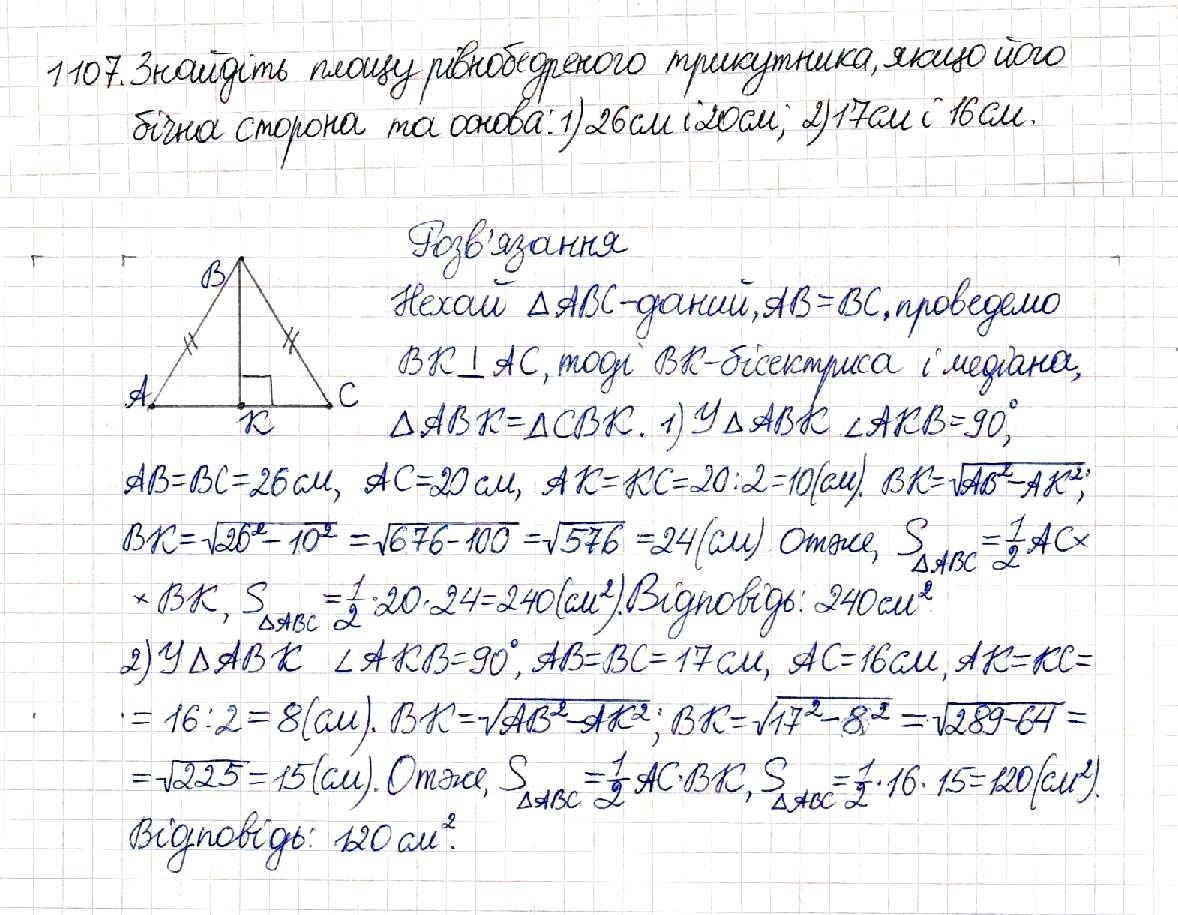 1107. Знайдіть площу рівнобедреного трикутника, якщо його
бічна сторона та основа: 1) 26 см і 20 см; 2) 17 см і 16 см.
Розв'язання
B
A
C
K
Нехай △ABC - даний, AB = BC, проведемо
BK ⊥ AC, тоді BK - бісектриса і медіана,
△ABK = △CBK. 1) У △ABK ∠AKB = 90°,
AB = BC = 26 см, AC = 20 см, AK = KC = 20 : 2 = 10 (см). BK = √(AB² - AK²);
BK = √(26² - 10²) = √(676 - 100) = √576 = 24 (см) Отже, S△ABC = 1/2 AC ×
× BK, S△ABC = 1/2 · 20 · 24 = 240 (см²). Відповідь: 240 см²
2) У △ABK ∠AKB = 90°, AB = BC = 17 см, AC = 16 см, AK = KC =
= 16 : 2 = 8 (см). BK = √(AB² - AK²); BK = √(17² - 8²) = √(289 - 64) =
= √225 = 15 (см). Отже, S△ABC = 1/2 AC · BK, S△ABC = 1/2 · 16 · 15 = 120 (см²).
Відповідь: 120 см².